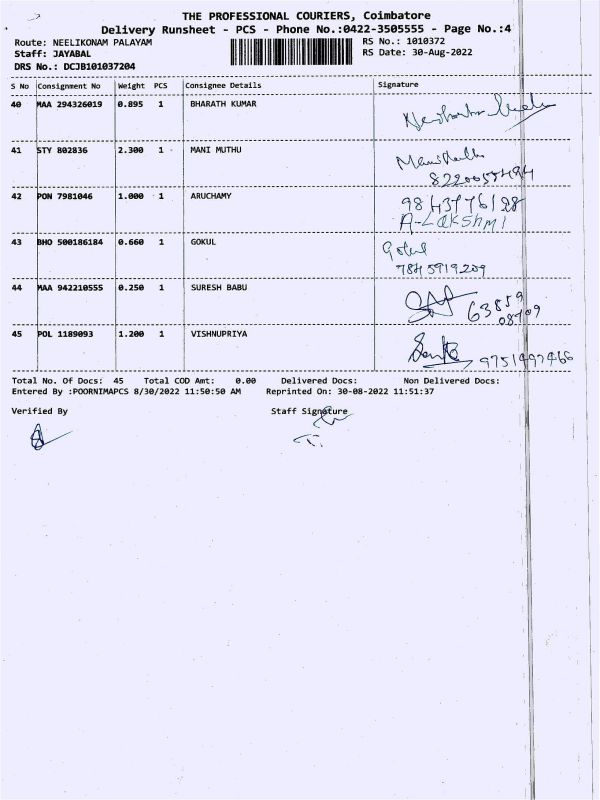 THE PROFESSIONAL COURIERS, Coimbatore
Delivery Runsheet - PCS - Phone No.:0422-3505555 - Page No.:4
Route: NEELIKONAM PALAYAM RS No.: 1010372
Staff: JAYABAL RS Date: 30-Aug-2022
DRS No.: DCJB101037204
S No Consignment No Weight PCS Consignee Details Signature
40 MAA 294326019 0.895 1 BHARATH KUMAR
41 STY 802836 2.300 1 MANI MUTHU
42 PON 7981046 1.000 1 ARUCHAMY 9843776128
A-LAKShmI
43 BHO 500186184 0.660 1 GOKUL Gokul
7845919209
44 MAA 942210555 0.250 1 SURESH BABU 63859
08409
45 POL 1189093 1.200 1 VISHNUPRIYA
9751497466
Total No. Of Docs: 45 Total COD Amt: 0.00 Delivered Docs: Non Delivered Docs:
Entered By :POORNIMAPCS 8/30/2022 11:50:50 AM Reprinted On: 30-08-2022 11:51:37
Verified By Staff Signature